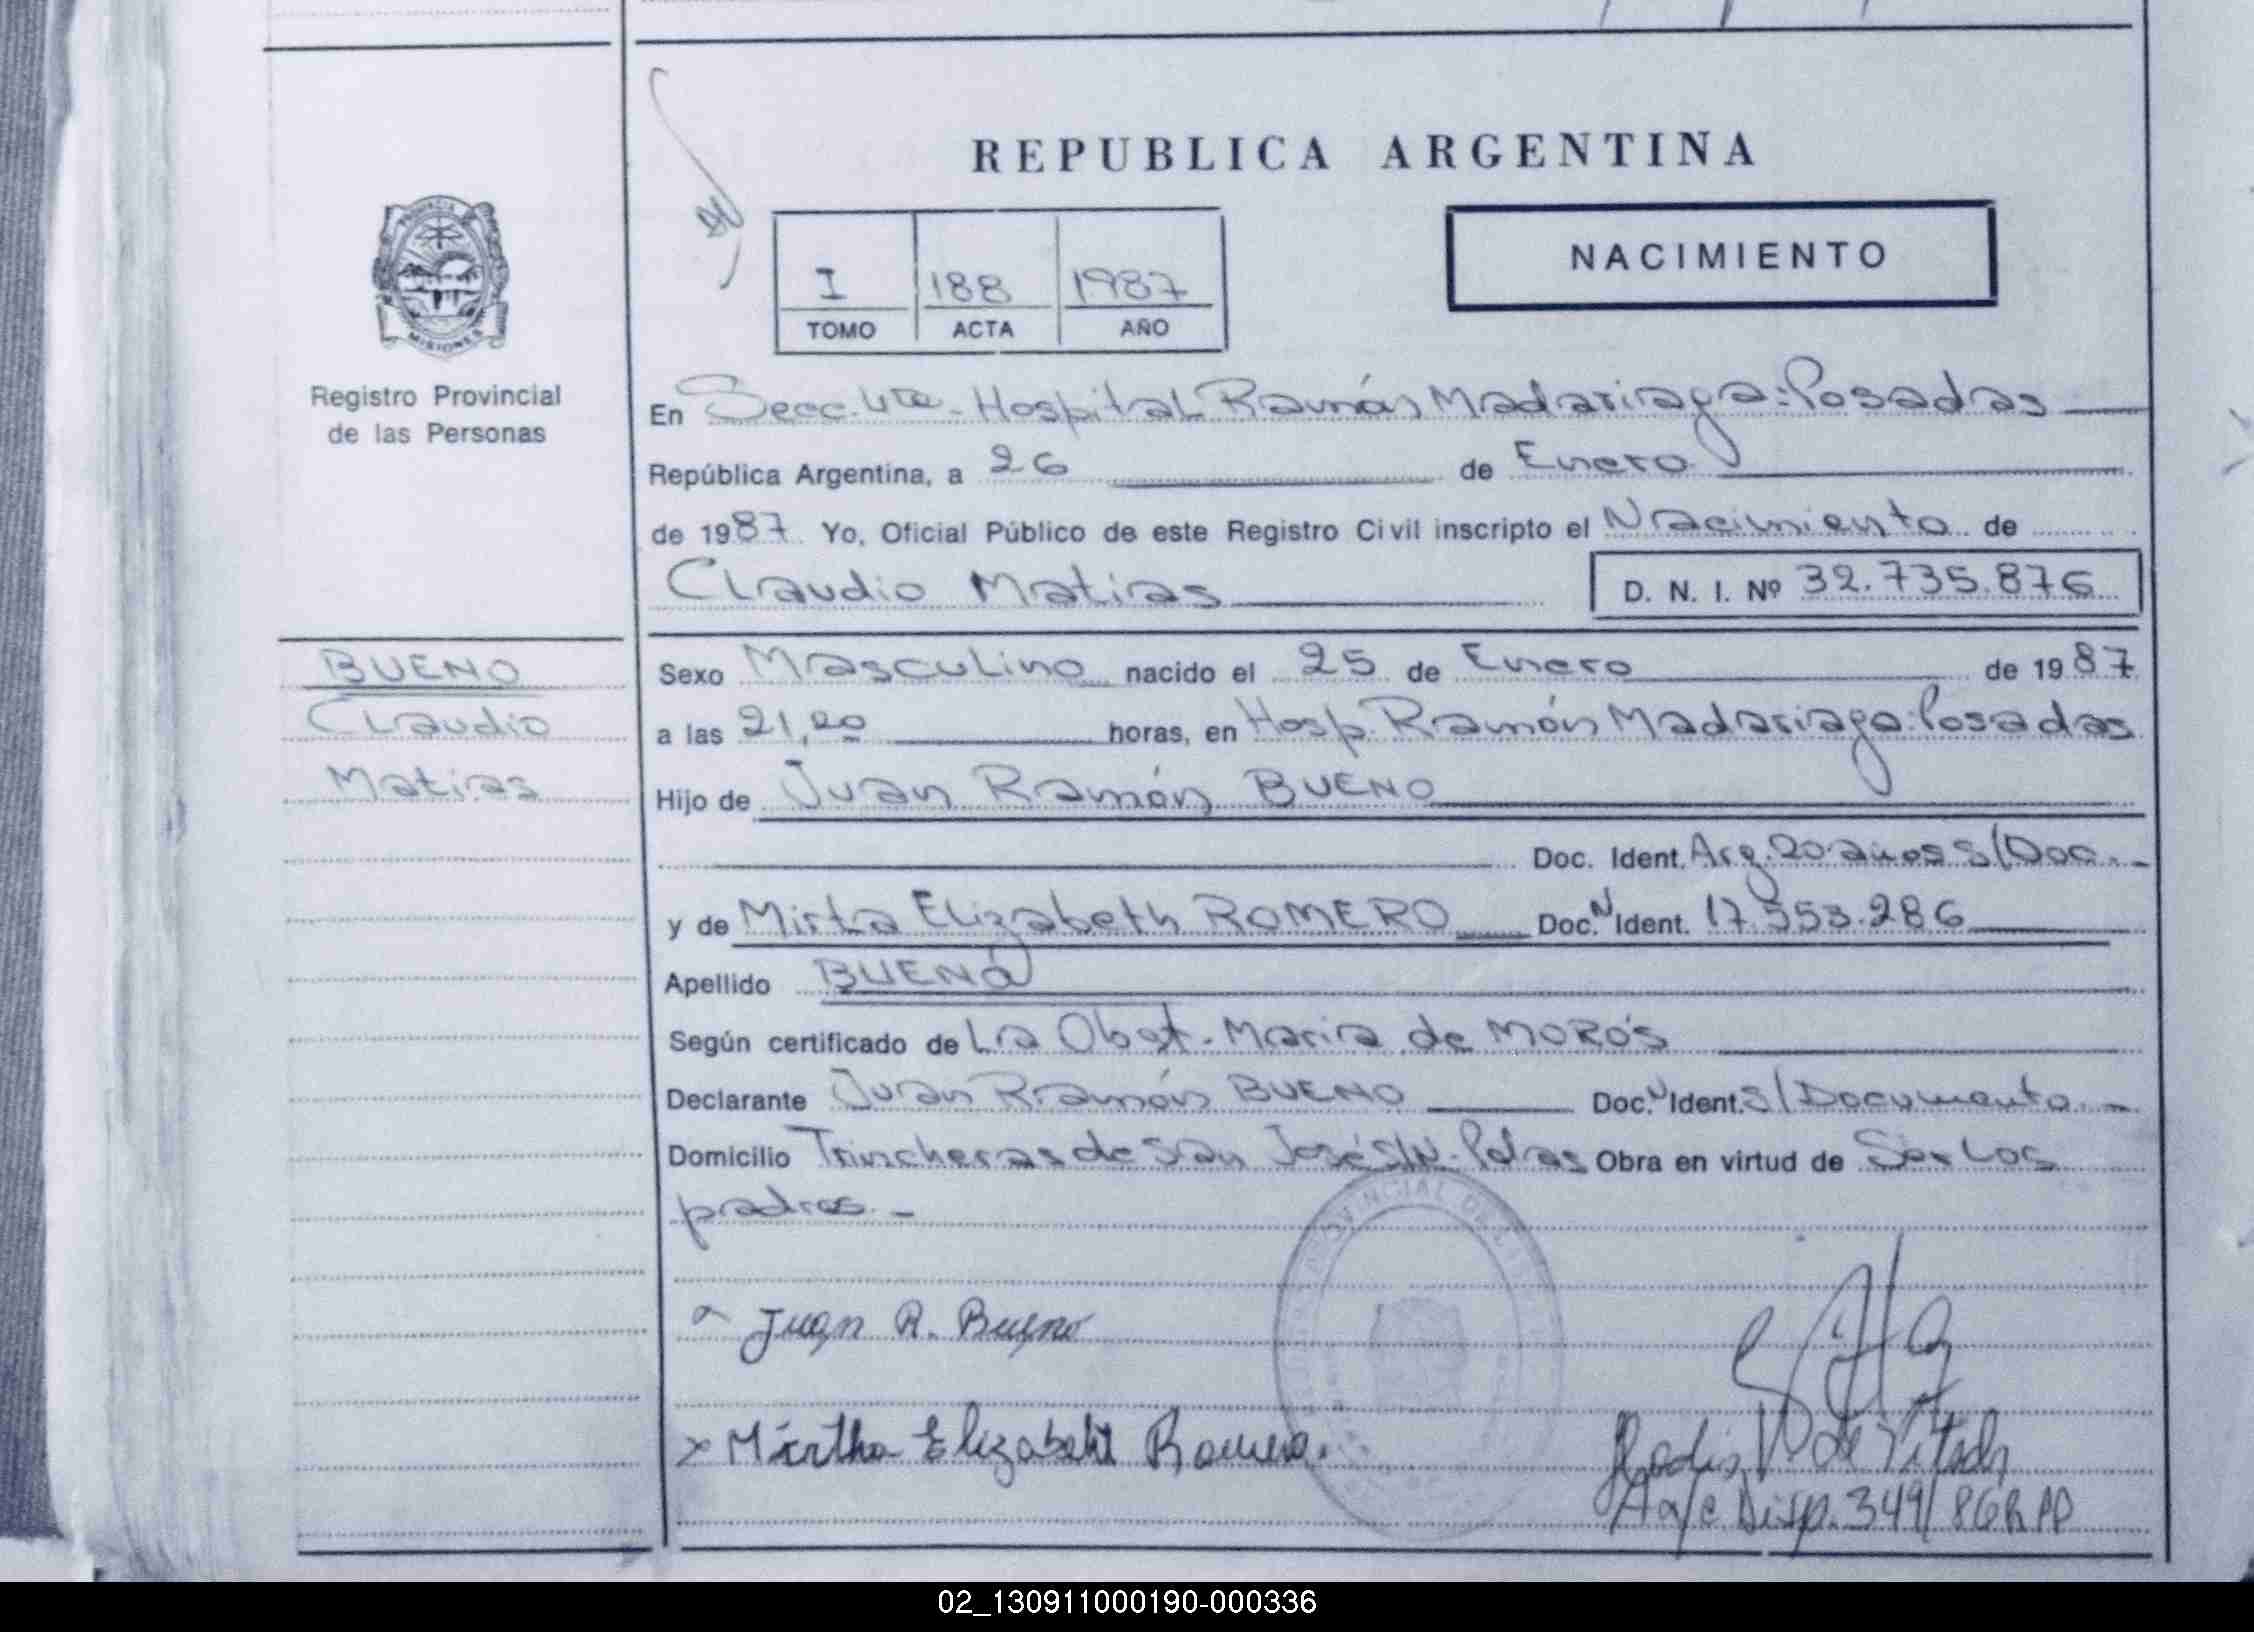 REPUBLICA ARGENTINA
NACIMIENTO
I 188 1987
TOMO ACTA AÑO
PROVINCIA DE
MISIONES
Registro Provincial
de las Personas
En Secc. 4ta. Hospital Ramón Madariaga: Posadas
República Argentina, a 26 de Enero
de 1987. Yo, Oficial Público de este Registro Civil inscripto el Nacimiento de
Claudio Matias D. N. I. Nº 32.735.876
BUENO
Claudio
Matias
Sexo Masculino nacido el 25 de Enero de 1987
a las 21,20 horas, en Hosp. Ramón Madariaga: Posadas
Hijo de Juan Ramón BUENO
Doc. Ident. Arg. 20 años S/Doc. -
y de Mirta Elizabeth ROMERO Doc. N Ident. 17.553.286
Apellido BUENO
Según certificado de La Obst. Maria de MOROS
Declarante Juan Ramón BUENO Doc. N Ident. S/Documento. -
Domicilio Trincheras de San José S/N. Pdas Obra en virtud de Ser Los
padres. -
Juan R. Bueno
x Mirtha Elizabeht Romero.
PROVINCIAL DE
de
A a/c Disp. 349/86 R PP
02_130911000190-000336